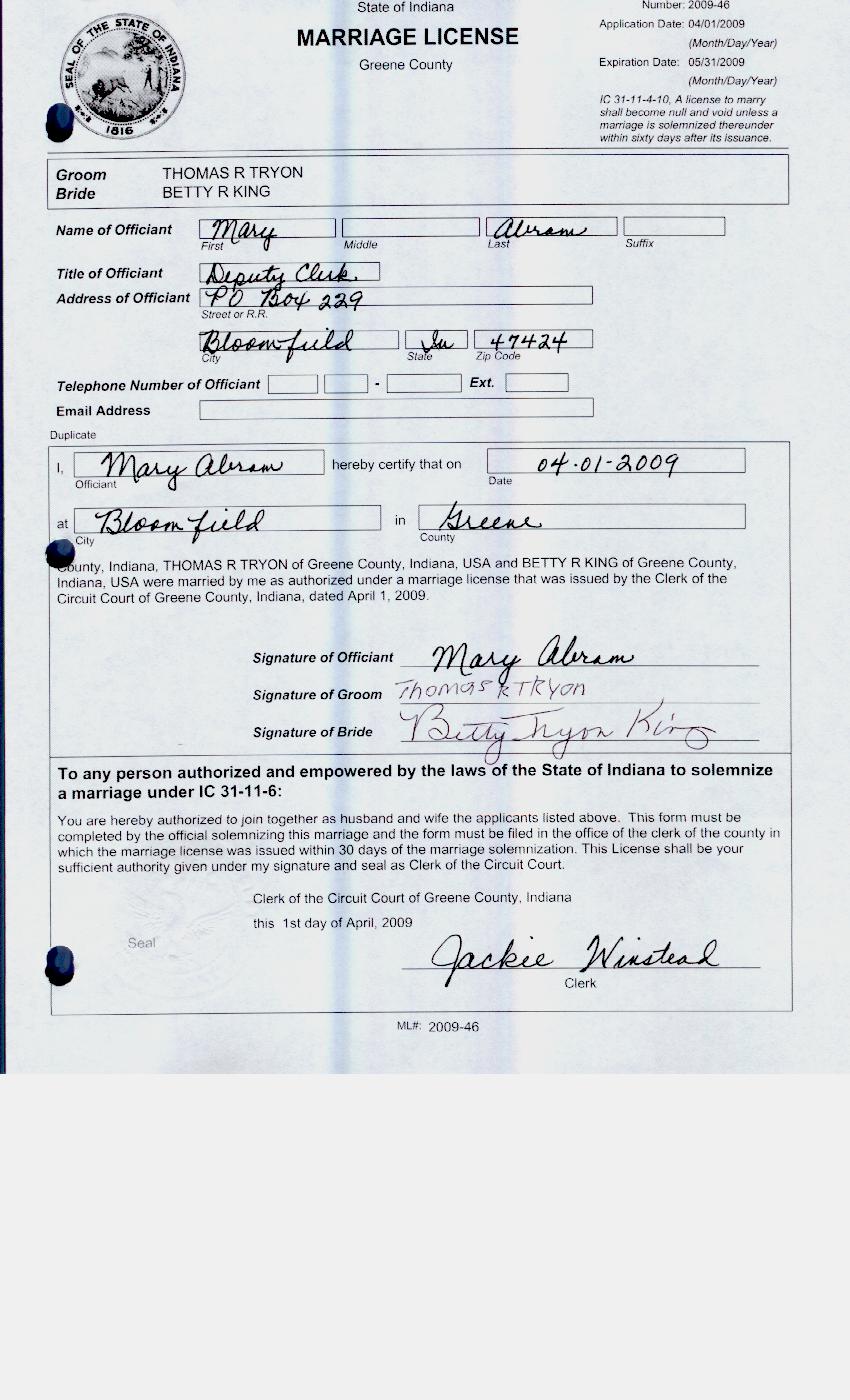 State of Indiana
MARRIAGE LICENSE
Greene County
Number: 2009-46
Application Date: 04/01/2009
(Month/Day/Year)
Expiration Date: 05/31/2009
(Month/Day/Year)
IC 31-11-4-10, A license to marry
shall become null and void unless a
marriage is solemnized thereunder
within sixty days after its issuance.
SEAL OF THE STATE OF INDIANA
1816
Groom THOMAS R TRYON
Bride BETTY R KING
Name of Officiant Mary Abram
First Middle Last Suffix
Title of Officiant Deputy Clerk
Address of Officiant PO Box 229
Street or R.R.
Bloomfield In 47424
City State Zip Code
Telephone Number of Officiant - Ext.
Email Address
Duplicate
I, Mary Abram hereby certify that on 04-01-2009
Officiant Date
at Bloomfield in Greene
City County
County, Indiana, THOMAS R TRYON of Greene County, Indiana, USA and BETTY R KING of Greene County,
Indiana, USA were married by me as authorized under a marriage license that was issued by the Clerk of the
Circuit Court of Greene County, Indiana, dated April 1, 2009.
Signature of Officiant Mary Abram
Signature of Groom Thomas R TRyon
Signature of Bride Betty Tryon King
To any person authorized and empowered by the laws of the State of Indiana to solemnize
a marriage under IC 31-11-6:
You are hereby authorized to join together as husband and wife the applicants listed above. This form must be
completed by the official solemnizing this marriage and the form must be filed in the office of the clerk of the county in
which the marriage license was issued within 30 days of the marriage solemnization. This License shall be your
sufficient authority given under my signature and seal as Clerk of the Circuit Court.
Clerk of the Circuit Court of Greene County, Indiana
this 1st day of April, 2009
Seal
Jackie Winstead
Clerk
ML#: 2009-46